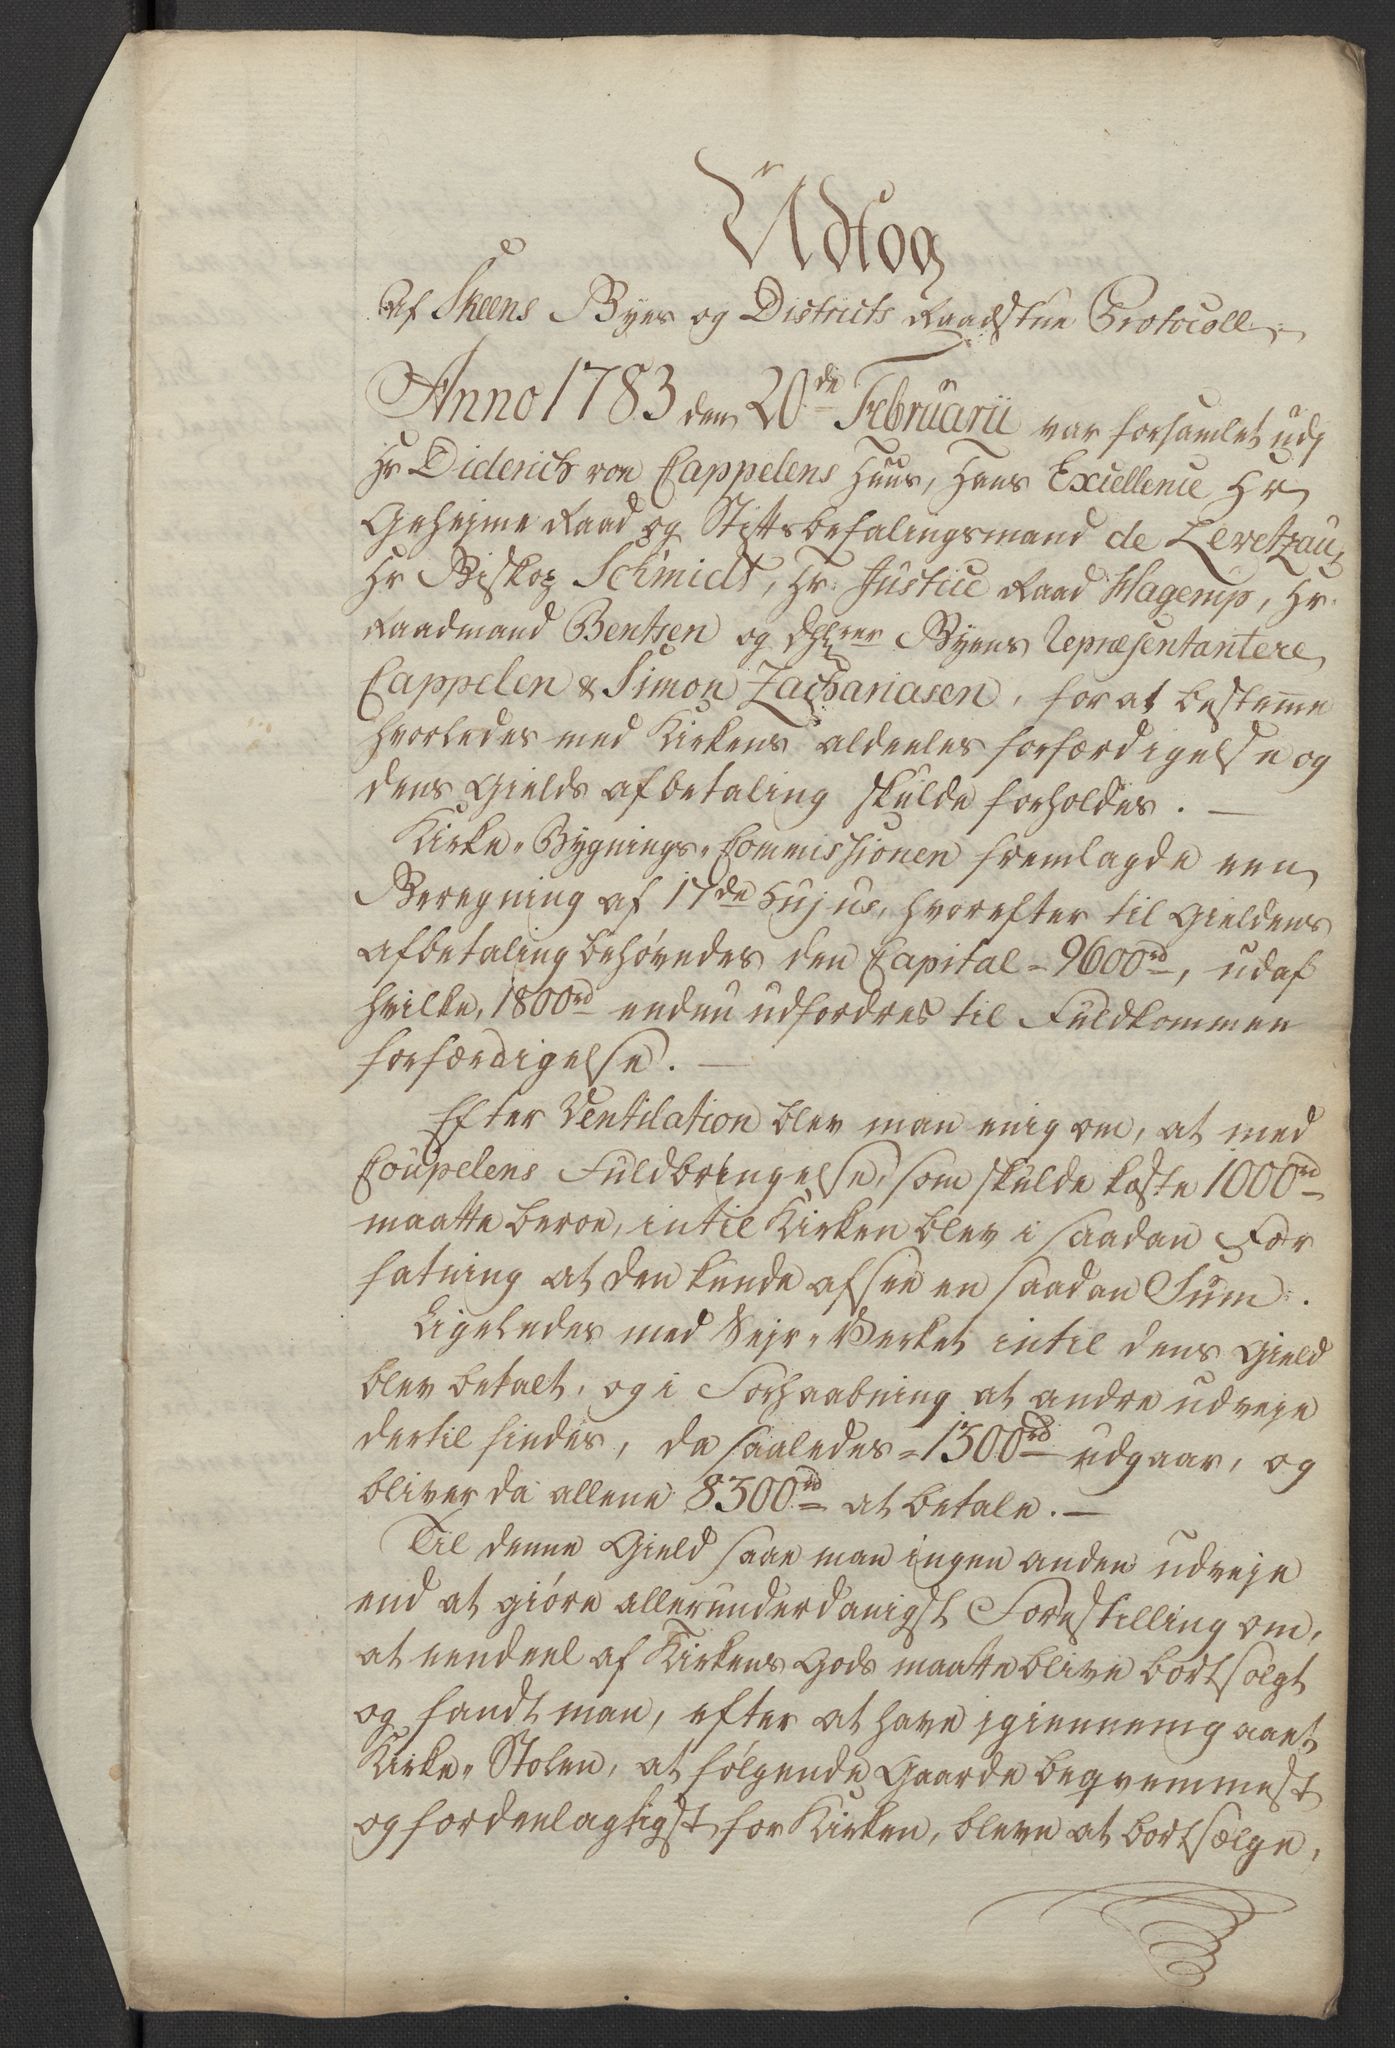 Udtog
Af Skeens Byes og Districts Raadstue Protocoll
Anno 1783 den 20de Februarii var forsamlet udj
Hr Diderich von Cappelens Huus, Hans Excellence Hr
Geheime Raad og Stiftsbefalingsmand de Levetzau,
Hr Biskop Schmidt, Hr. Justice Raad Hagerup, Hr.
Raadmand Bentsen og DHrrer Byens Repræsentantere
Cappelen & Simon Zachariasen, for at bestemme
hvorledes med Kirkens aldeeles forfærdigelse og
dens Gields afbetaling skulde forholdes. —
Kirke-Bygnings-Commissionen fremlagde een
Beregning af 17de hujus, hvorefter til Gieldens
afbetaling behøvedes den Capital = 9600rd, udaf
hvilke, 1800rd endnu udfordres til Fuldkommen
forfærdigelse. —
Efter Ventilation blev man enig om, at med
Coupelens Fuldbringelse, som skulde koste 1000rd
maatte beroe, intil Kirken blev i saadan For
fatning at den kunde afsee en saadan Sum.
Ligeledes med Sejr-Verket intil dens Gield
blev betalt, og i Forhaabning at andre udveje
dertil findes, da saaledes = 1300rd udgaar, og
bliver da allene 8300rd at betale. —
Til denne Gield saae man ingen anden udveje
end at giøre allerunderdanigst Forestilling om,
at eendeel af Kirkens Gods maatte blive bortsolgt
og fandt man, efter at have igiennemgaaet
Kirke-Stolen, at følgende Gaarde beqvemmest
og fordeelagtigst for Kirken, bleve at bortsælge,